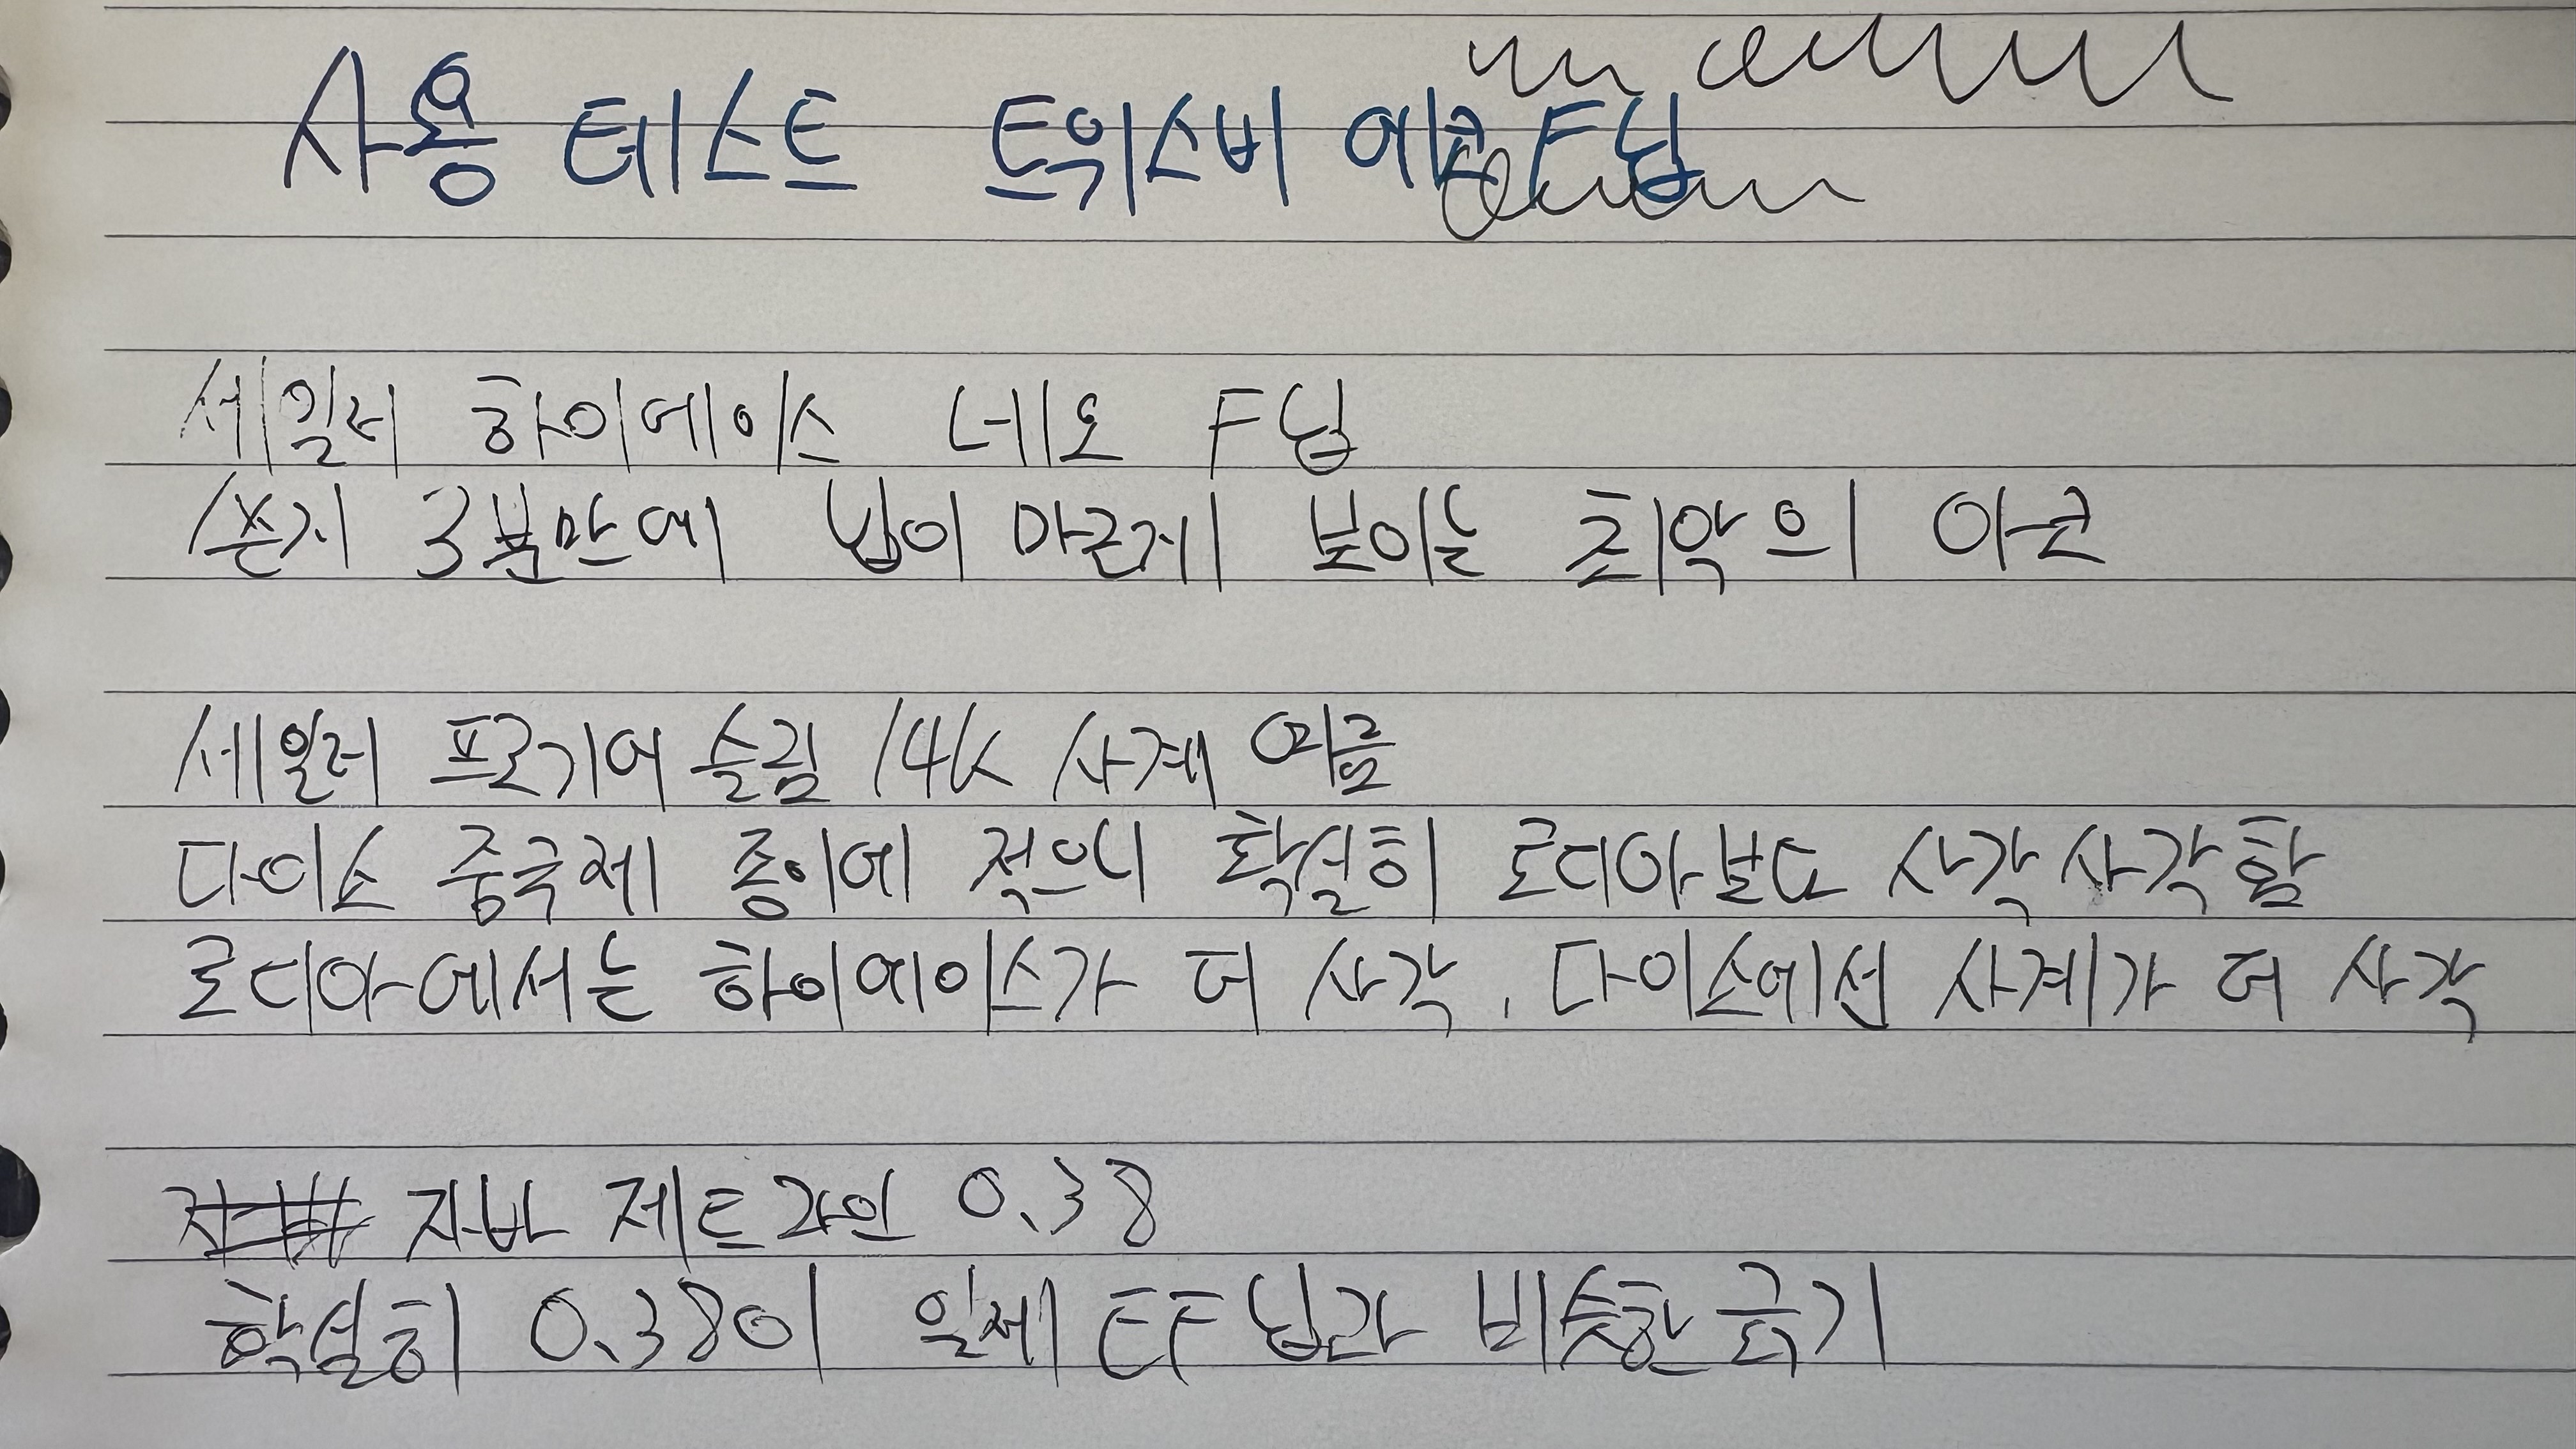 사용 테스트 트위스비 에코 F닙
세일러 하이에이스 네오 F닙
쓴지 3분만에 닙이 마르게 보이는 최악의
세일러 프로기어 슬림 14K 사계 여름
다이소 중국제 종이에 적으니 확실히 로디아보다 사각사각함
로디아에서는 하이에이스가 더 사각, 다이소에선 사계가 더 사각
자바 제트라인 0.38
확실히 0.38이 일제 EF닙과 비슷한 굵기